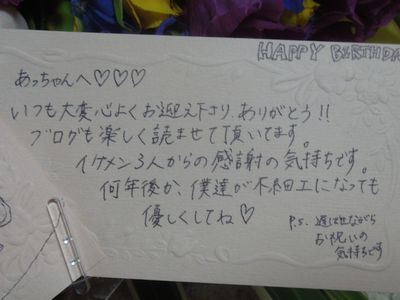 HAPPY BIRTHDA
あっちゃんへ♡♡♡
いつも大変心よくお迎え下さり、ありがとう!!
ブログも楽しく読ませて頂いてます。
イケメン3人からの感謝の気持ちです。
何年後か、僕達が不細工になっても
優しくしてね♡
P.S. 遅ればせながら
お祝いの
気持ちです